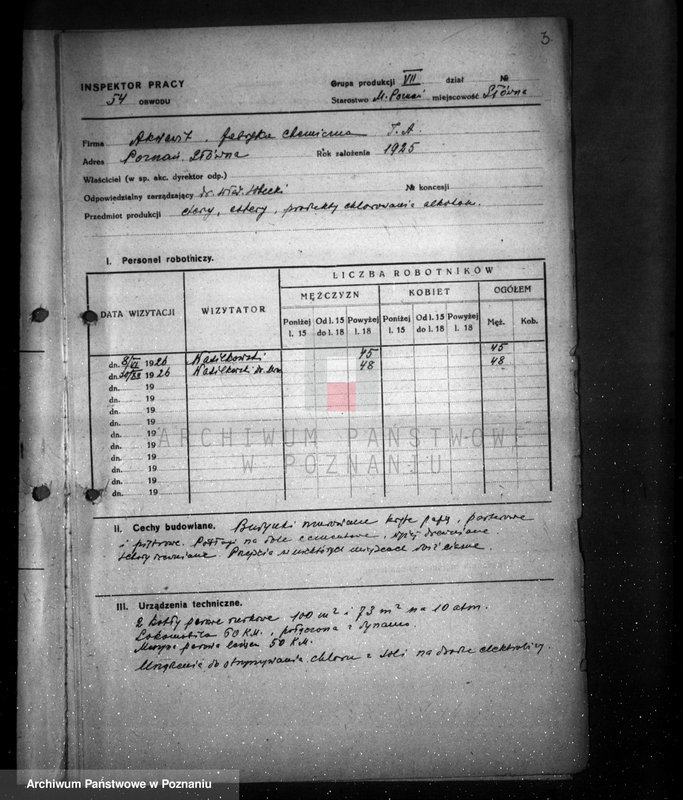 3
INSPEKTOR PRACY
54 OBWODU
Grupa produkcji VII dział №
Starostwo M. Poznań miejscowość Główna
Firma Akwawit, fabryka chemiczna T. A.
Adres Poznań. Główna Rok założenia 1925
Właściciel (w sp. akc. dyrektor odp.)
Odpowiedzialny zarządzający dr. Wład. № koncesji
Przedmiot produkcji etery, estery, produkty chlorowania alkoholu.
I. Personel robotniczy.
DATA WIZYTACJI
WIZYTATOR
LICZBA ROBOTNIKÓW
MĘŻCZYZN
KOBIET
OGÓŁEM
Poniżej l. 15
Od l. 15 do l. 18
Powyżej l. 18
Poniżej l. 15
Od l. 15 do l. 18
Powyżej l. 18
Męż.
Kob.
dn. 8/VI 1926 Wasilkowski 45 45
dn. 30/XII 1926 Wasilkowski 48 48
dn. 19
dn. 19
dn. 19
dn. 19
dn. 19
dn. 19
dn. 19
dn. 19
dn. 19
dn. 19
ARCHIWUM PAŃSTWOWE
W POZNANIU
II. Cechy budowlane. Budynki murowane kryte papą, parterowe
i piętrowe. Podłogi na dole cementowe, wyżej drewniane
schody drewniane. Przejścia w niektórych miejscach dość ciasne.
III. Urządzenia techniczne.
2 kotły parowe rurkowe 100 m² i 73 m² na 10 atm.
Lokomobila 60 K.M., połączona z dynamo.
Maszyna parowa 50 K.M.
Urządzenia do otrzymywania chloru z soli na drodze elektrolizy.
Archiwum Państwowe w Poznaniu